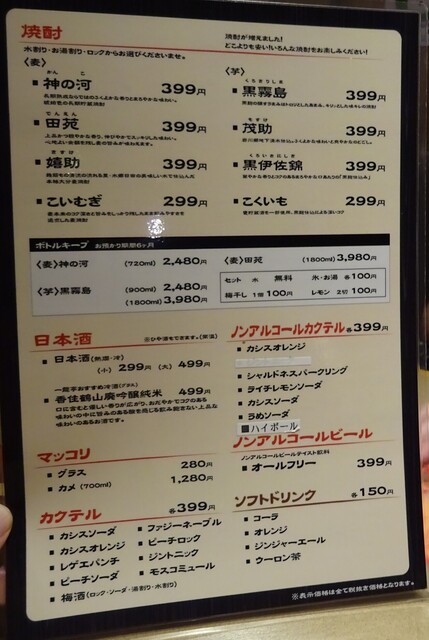 焼酎
焼酎が増えました!
どこよりも安い!いろんな焼酎をお楽しみください!
水割り・お湯割り・ロックからお選びくださいませ。
〈麦〉
かん こ
■ 神の河 399円
でんえん
■ 田苑 399円
ますけ
■ 嬉助 399円
■ こいむぎ 299円
〈芋〉
くろきりしま
■ 黒霧島 399円
もすけ
■ 茂助 399円
くろいさにしき
■ 黒伊佐錦 399円
■ こくいも 299円
ボトルキープ お預かり期間6ヶ月
〈麦〉神の河 (720ml) 2,480円
〈芋〉黒霧島 (900ml) 2,480円
(1800ml) 3,980円
〈麦〉田苑 (1800ml) 3,980円
セット 水 無料 氷・お湯 各100円
梅干し 1個 100円 レモン 2切 100円
日本酒
■ 日本酒(熱燗・冷)
(小) 299円 (大) 499円
■ 香住鶴山廃吟醸純米 499円
マッコリ
■ グラス 280円
■ カメ (700ml) 1,280円
カクテル 各399円
■ カシスソーダ
■ カシスオレンジ
■ レゲエパンチ
■ ピーチソーダ
■ 梅酒(ロック・ソーダ・湯割り・水割り)
■ ファジーネーブル
■ ピーチロック
■ ジントニック
■ モスコミュール
ノンアルコールカクテル 各399円
■ カシスオレンジ
■ シャルドネスパークリング
■ ライチレモンソーダ
■ カシスソーダ
■ うめソーダ
■ハイボール
ノンアルコールビール
ノンアルコールビールテイスト飲料
■ オールフリー 399円
ソフトドリンク 各150円
■ コーラ
■ オレンジ
■ ジンジャーエール
■ ウーロン茶
※表示価格は全て税抜き価格となります。